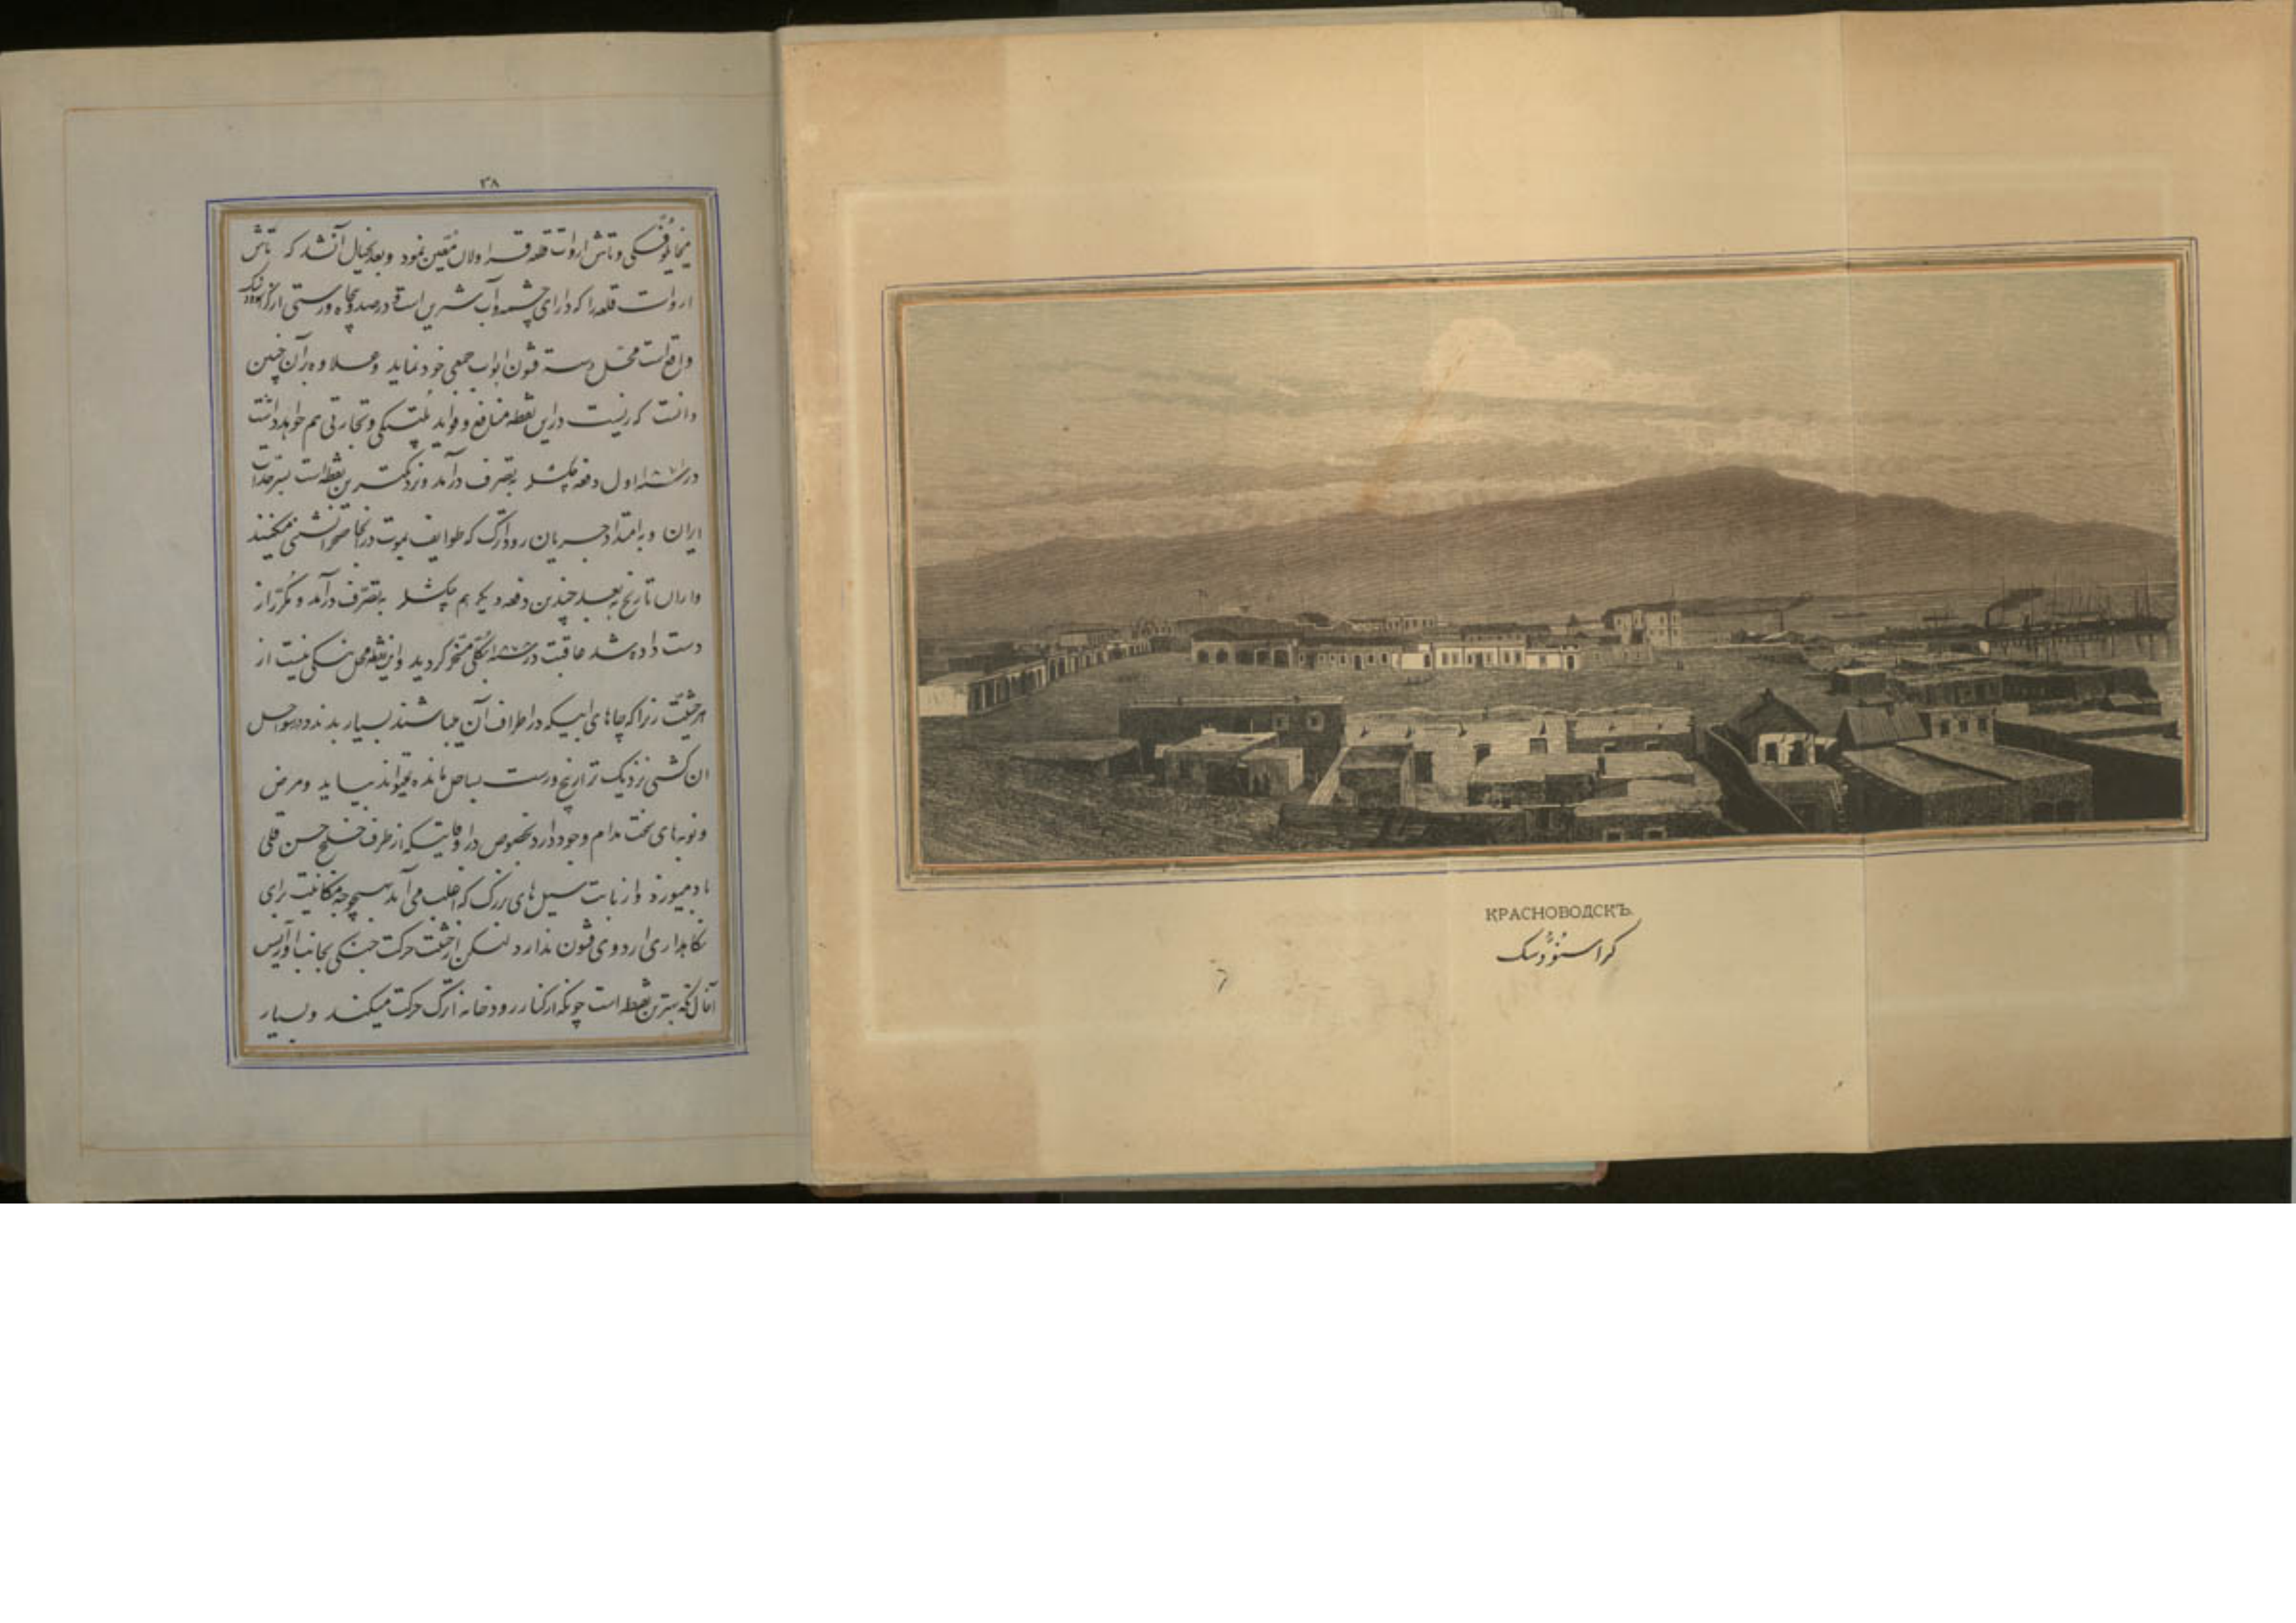 ۳۸
میخایلوفسکی و تاش اروات قلعه قراولان معین نمود و بعد بخیال آن شد که تاش
اروات قلعه را که دارای چشمه و آب شرین است و در صد و پنجاه ورستی از
واقع است محل دسته قشون ابواب جمعی خود نماید و علاوه بر آن چنین
دانست که زیست در این نقطه منافع و فواید پلتیکی و تجارتی هم خواهد داشت
در سنه اول دفعه چکشلر بتصرف در آمد و نزدیکترین نقطه است بسرحدات
ایران و به امتداد جریان رود اترک که طوایف یموت در آنجا صحرانشینی میکنند
و از آن تاریخ به بعد چندین دفعه دیگر هم چکشلر بتصرف در آمد و مکرر از
دست داده شد عاقبت در سنه بکلی مسخر گردید و این نقطه محل نیست از
هر حیثیت زیرا که چاههای آبیکه در اطراف آن میباشند بسیار بدند و در سواحل
آن کشتی نزدیک تر از پنج ورست بساحل مانده نمیتواند بیاید و مرض
و نوبه های سخت مدام وجود دارد بخصوص در اوقاتیکه از طرف خلیج حسن قلی
باد میوزد و از بابت سیل های بزرگ که اغلب می آید بهیچوجه مکانیت برای
نگاهداری اردوی قشون ندارد لیکن از حیثیت حرکت جنگی بجانب اوازیس
آخال تکه بهترین نقطه است چونکه از کنار رودخانه اترک حرکت میکنند و بسیار
КРАСНОВОДСКЪ.
کراسنوودسک